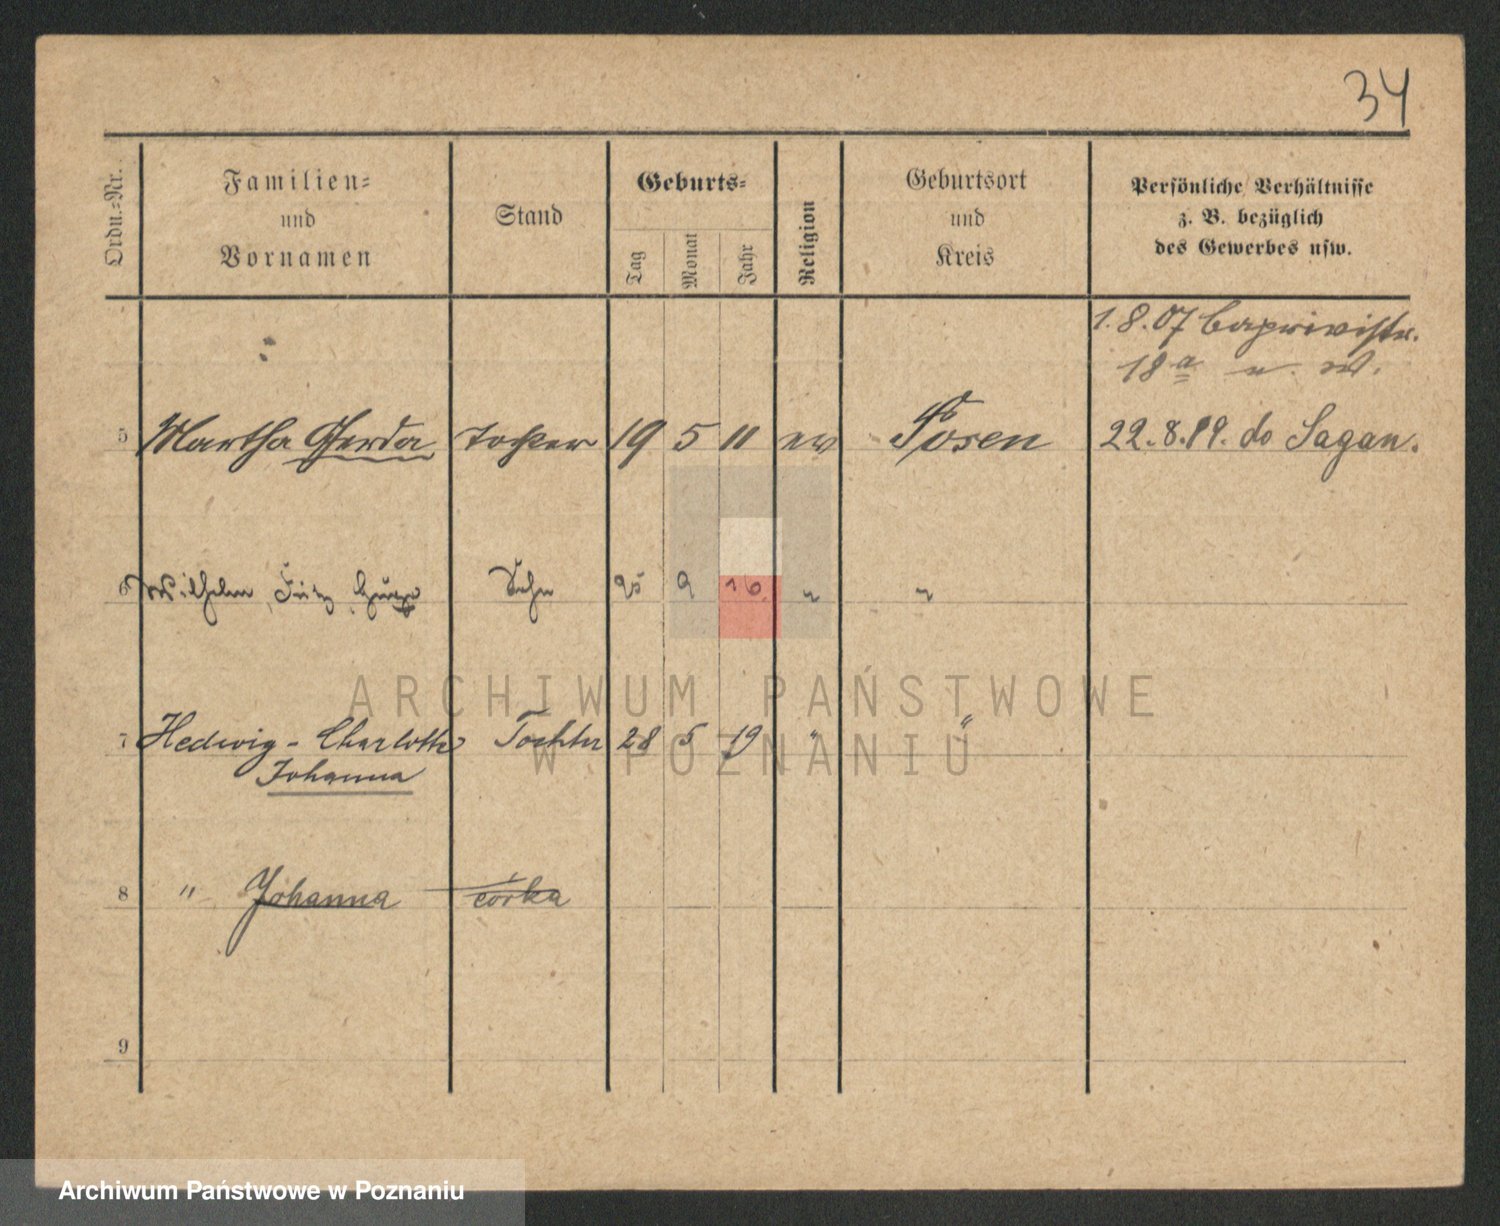 34
Ordn.-Nr.
Familien-
und
Vornamen
Stand
Geburts-
Tag
Monat
Jahr
Religion
Geburtsort
und
Kreis
Persönliche Verhältnisse
z. B. bezüglich
des Gewerbes usw.
1. 8. 07 Caprivistr.
18a n. W.
5 Martha Gerda Tochter 19 5 11 ev Posen 22.8.19. do Sagan.
6 Wilhelm, Sohn 25 9 16. " "
7 Hedwig - Charlotte Tochter 28 5 19 " "
Johanna
8 " Johanna córka
9
ARCHIWUM PAŃSTWOWE
W POZNANIU
Archiwum Państwowe w Poznaniu